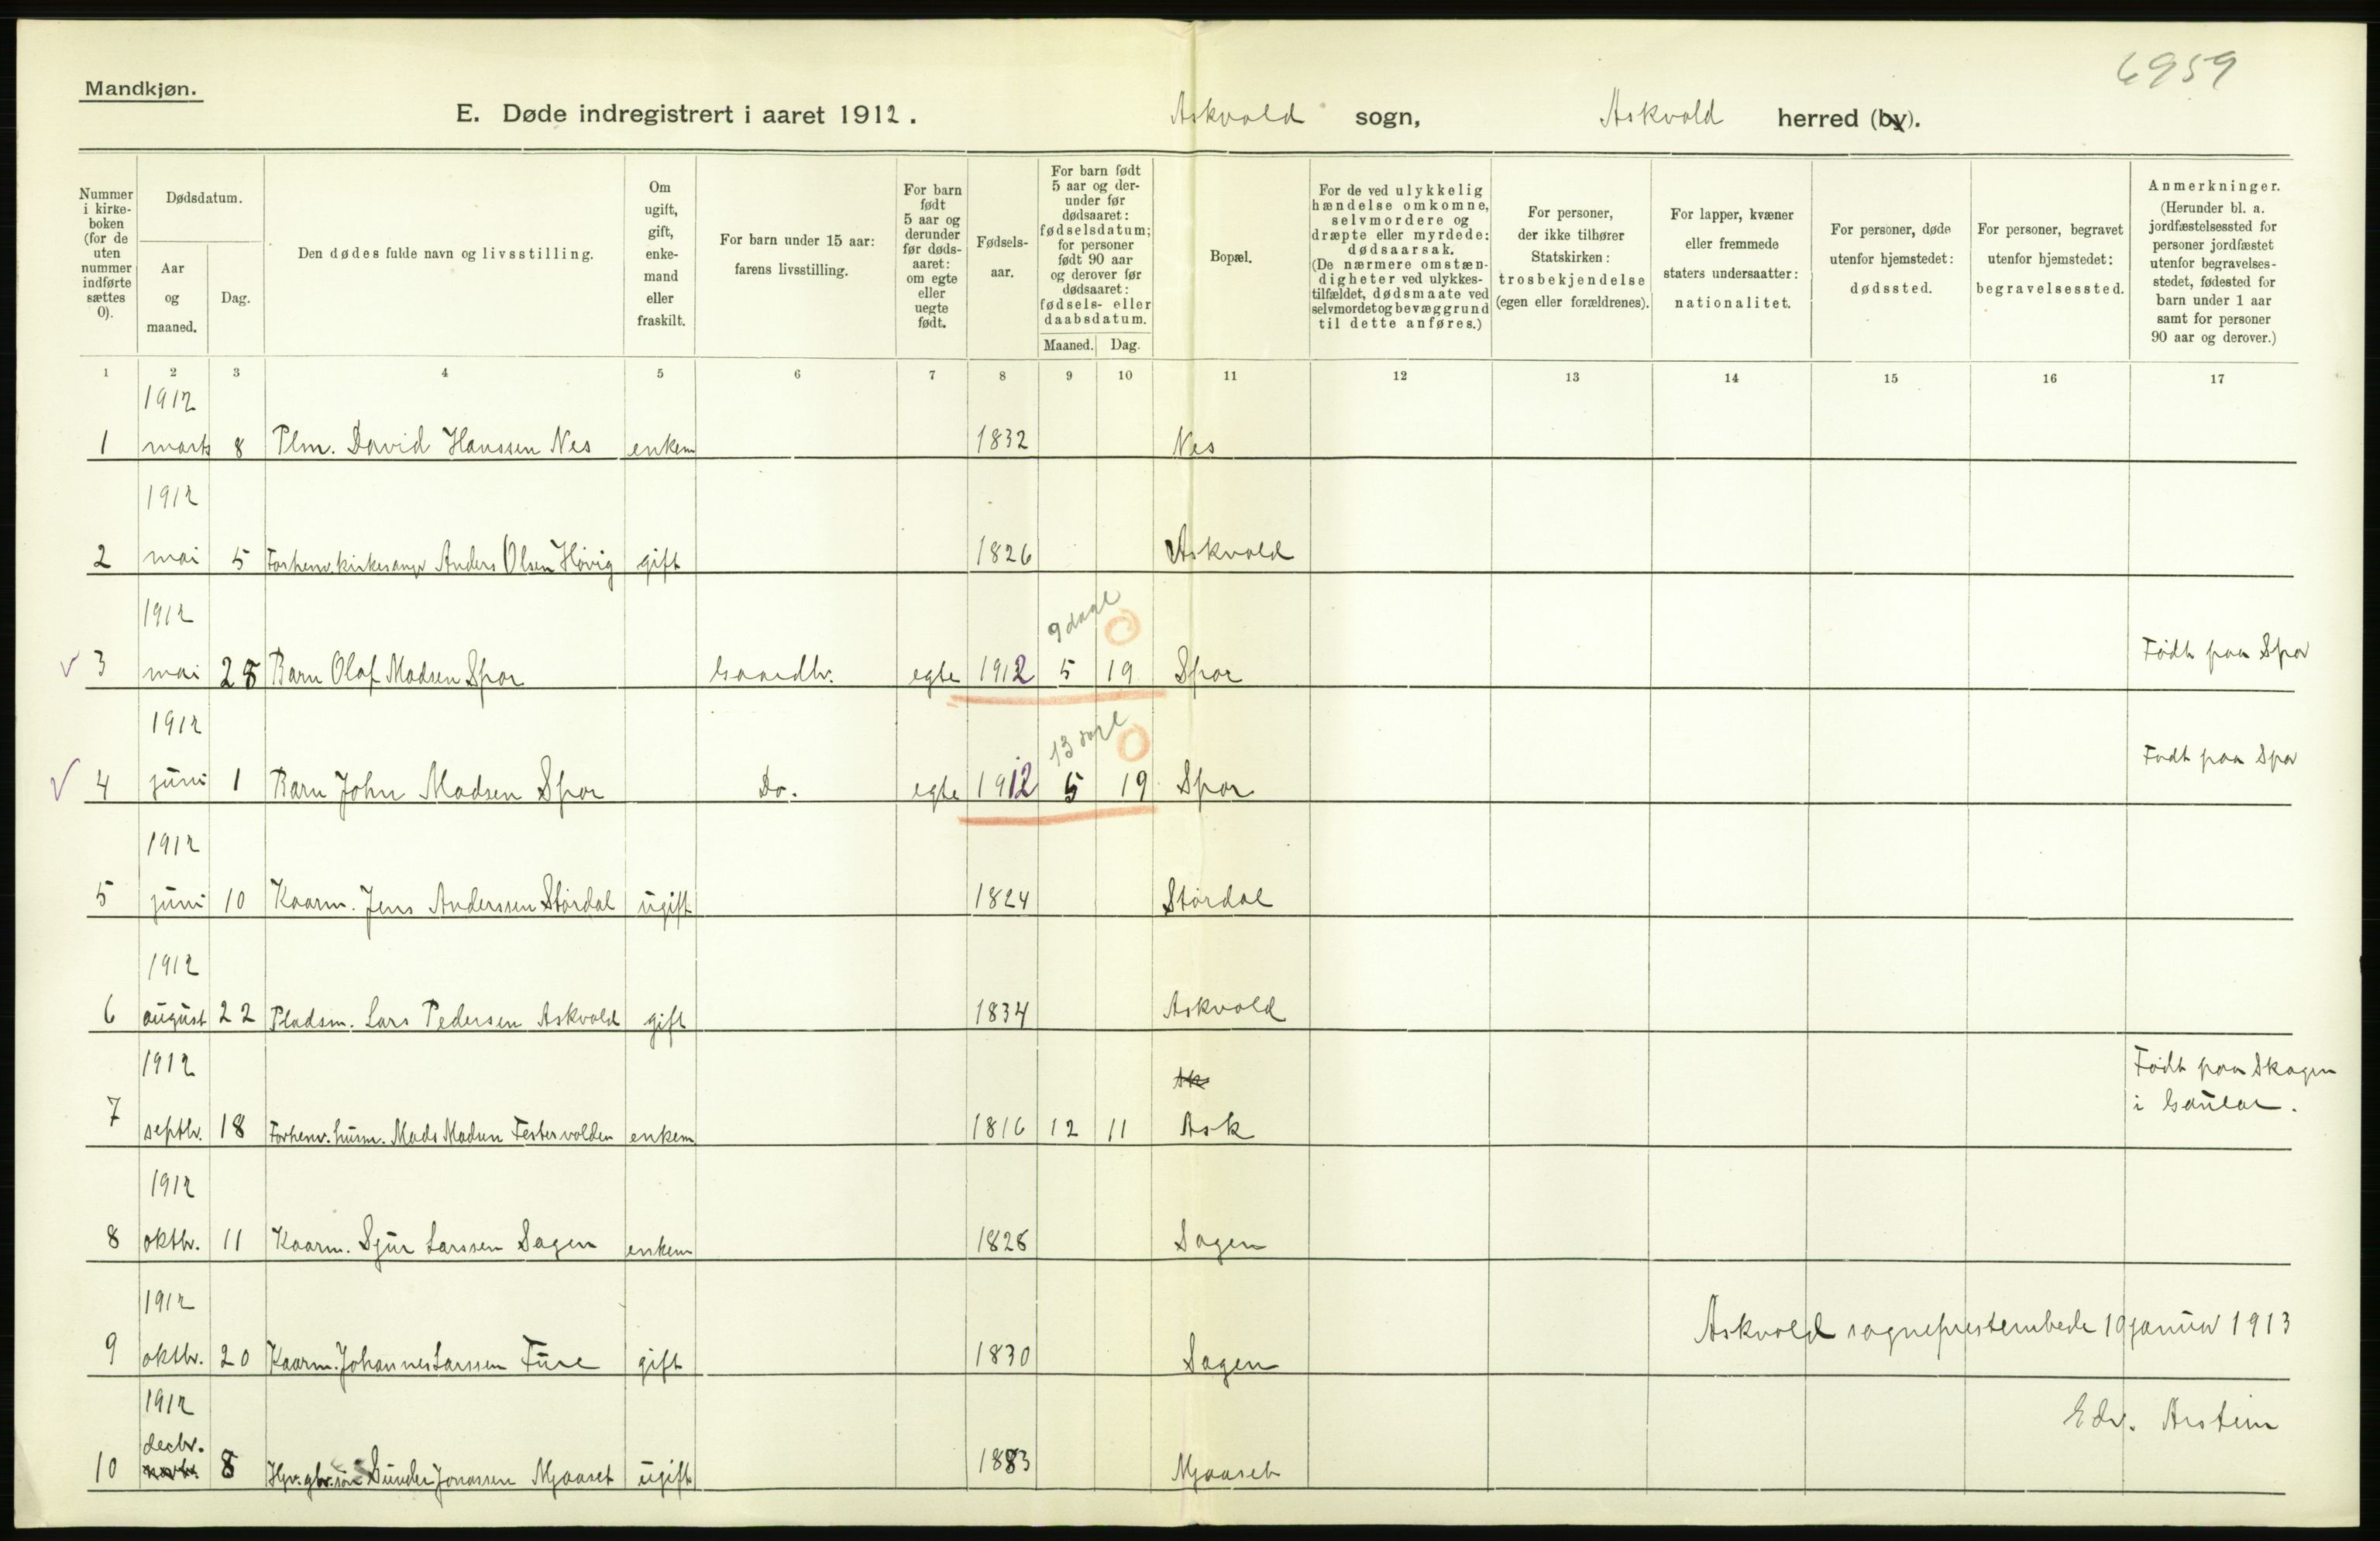 6959
Mandkjøn.
E. Døde indregistrert i aaret 1912. Askvold sogn, Askvold herred (by).
Nummer i kirke-boken (for de uten nummer indførte sættes 0).
Dødsdatum.
Aar og maaned.
Dag.
Den dødes fulde navn og livsstilling.
Om ugift, gift, enke-mand eller fraskilt.
For barn under 15 aar: farens livsstilling.
For barn født 5 aar og derunder før døds-aaret: om egte eller uegte født.
Fødsels-aar.
For barn født 5 aar og der-under før dødsaaret: fødselsdatum; for personer født 90 aar og derover før dødsaaret: fødsels- eller daabsdatum.
Maaned. Dag.
Bopæl.
For de ved ulykkelig hændelse omkomne, selvmordere og dræpte eller myrdede: dødsaarsak. (De nærmere omstæn-digheter ved ulykkes-tilfældet, dødsmaate ved selvmordet og bevæggrund til dette anføres.)
For personer, der ikke tilhører Statskirken: trosbekjendelse (egen eller forældrenes).
For lapper, kvæner eller fremmede staters undersaatter: nationalitet.
For personer, døde utenfor hjemstedet: dødssted.
For personer, begravet utenfor hjemstedet: begravelsessted.
Anmerkninger. (Herunder bl. a. jordfæstelsessted for personer jordfæstet utenfor begravelses-stedet, fødested for barn under 1 aar samt for personer 90 aar og derover.)
1 2 3 4 5 6 7 8 9 10 11 12 13 14 15 16 17
1912
1 marts 8 Plm. David Hanssen Nes enkem 1832 Nes
1912
2 mai 5 Forhenv. kirkesanger Anders Olsen Høvig gift 1826 Askvold
1912
9 dage
3 mai 28 Barn Olaf Madsen Spor Gaardbr. egte 1912 5 19 Spor Født paa Spor
1912
13 dage
4 juni 1 Barn John Madsen Spor Do. egte 1912 5 19 Spor Født paa Spor
1912
5 juni 10 Kaarm. Jens Anderssen Størdal ugift 1824 Størdal
1912
6 august 22 Pladsm. Lars Pedersen Askvold gift 1834 Askvold
1912
Ask
7 septbr. 18 Forhenv. husm. Mads Madsen Festervolden enkem 1816 12 11 Ask Født paa Skagen
i Gaular.
1912
8 oktbr. 11 Kaarm. Sjur Larssen Sagen enkem 1828 Sagen
1912
9 oktbr. 20 Kaarm. Johannes Larssen Fure gift 1830 Sagen
Askvold sogneprestembede 10 januar 1913
1912
Edv. Arstein
decbr.
10 8 Sunder Jonassen Mjaaset ugift 1883 Mjaaset